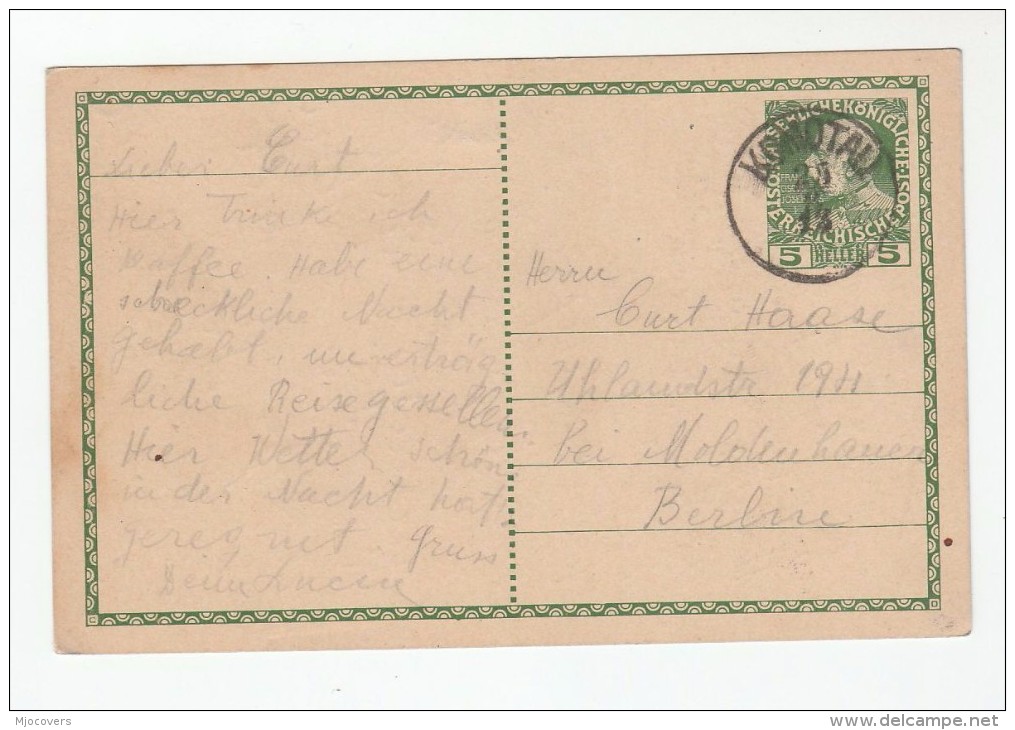 Lieber Curt
Hier Trinke ich
Kaffee. Habe eine
schreckliche Nacht
gehabt, unerträg
liche Reisegesellen.
Hier Wetter schön
in der Nacht hat's
geregnet. Gruss
Dein
KOMOTAU
KAISERLICHEKÖNIGLICHE
ÖSTERREICHISCHE POST
FRANZ
JOSEF I
5 HELLER 5
Herrn
Curt Haase
Uhlandstr 194
bei Moldenhauer
Berlin
Mjocovers
delcampe.net